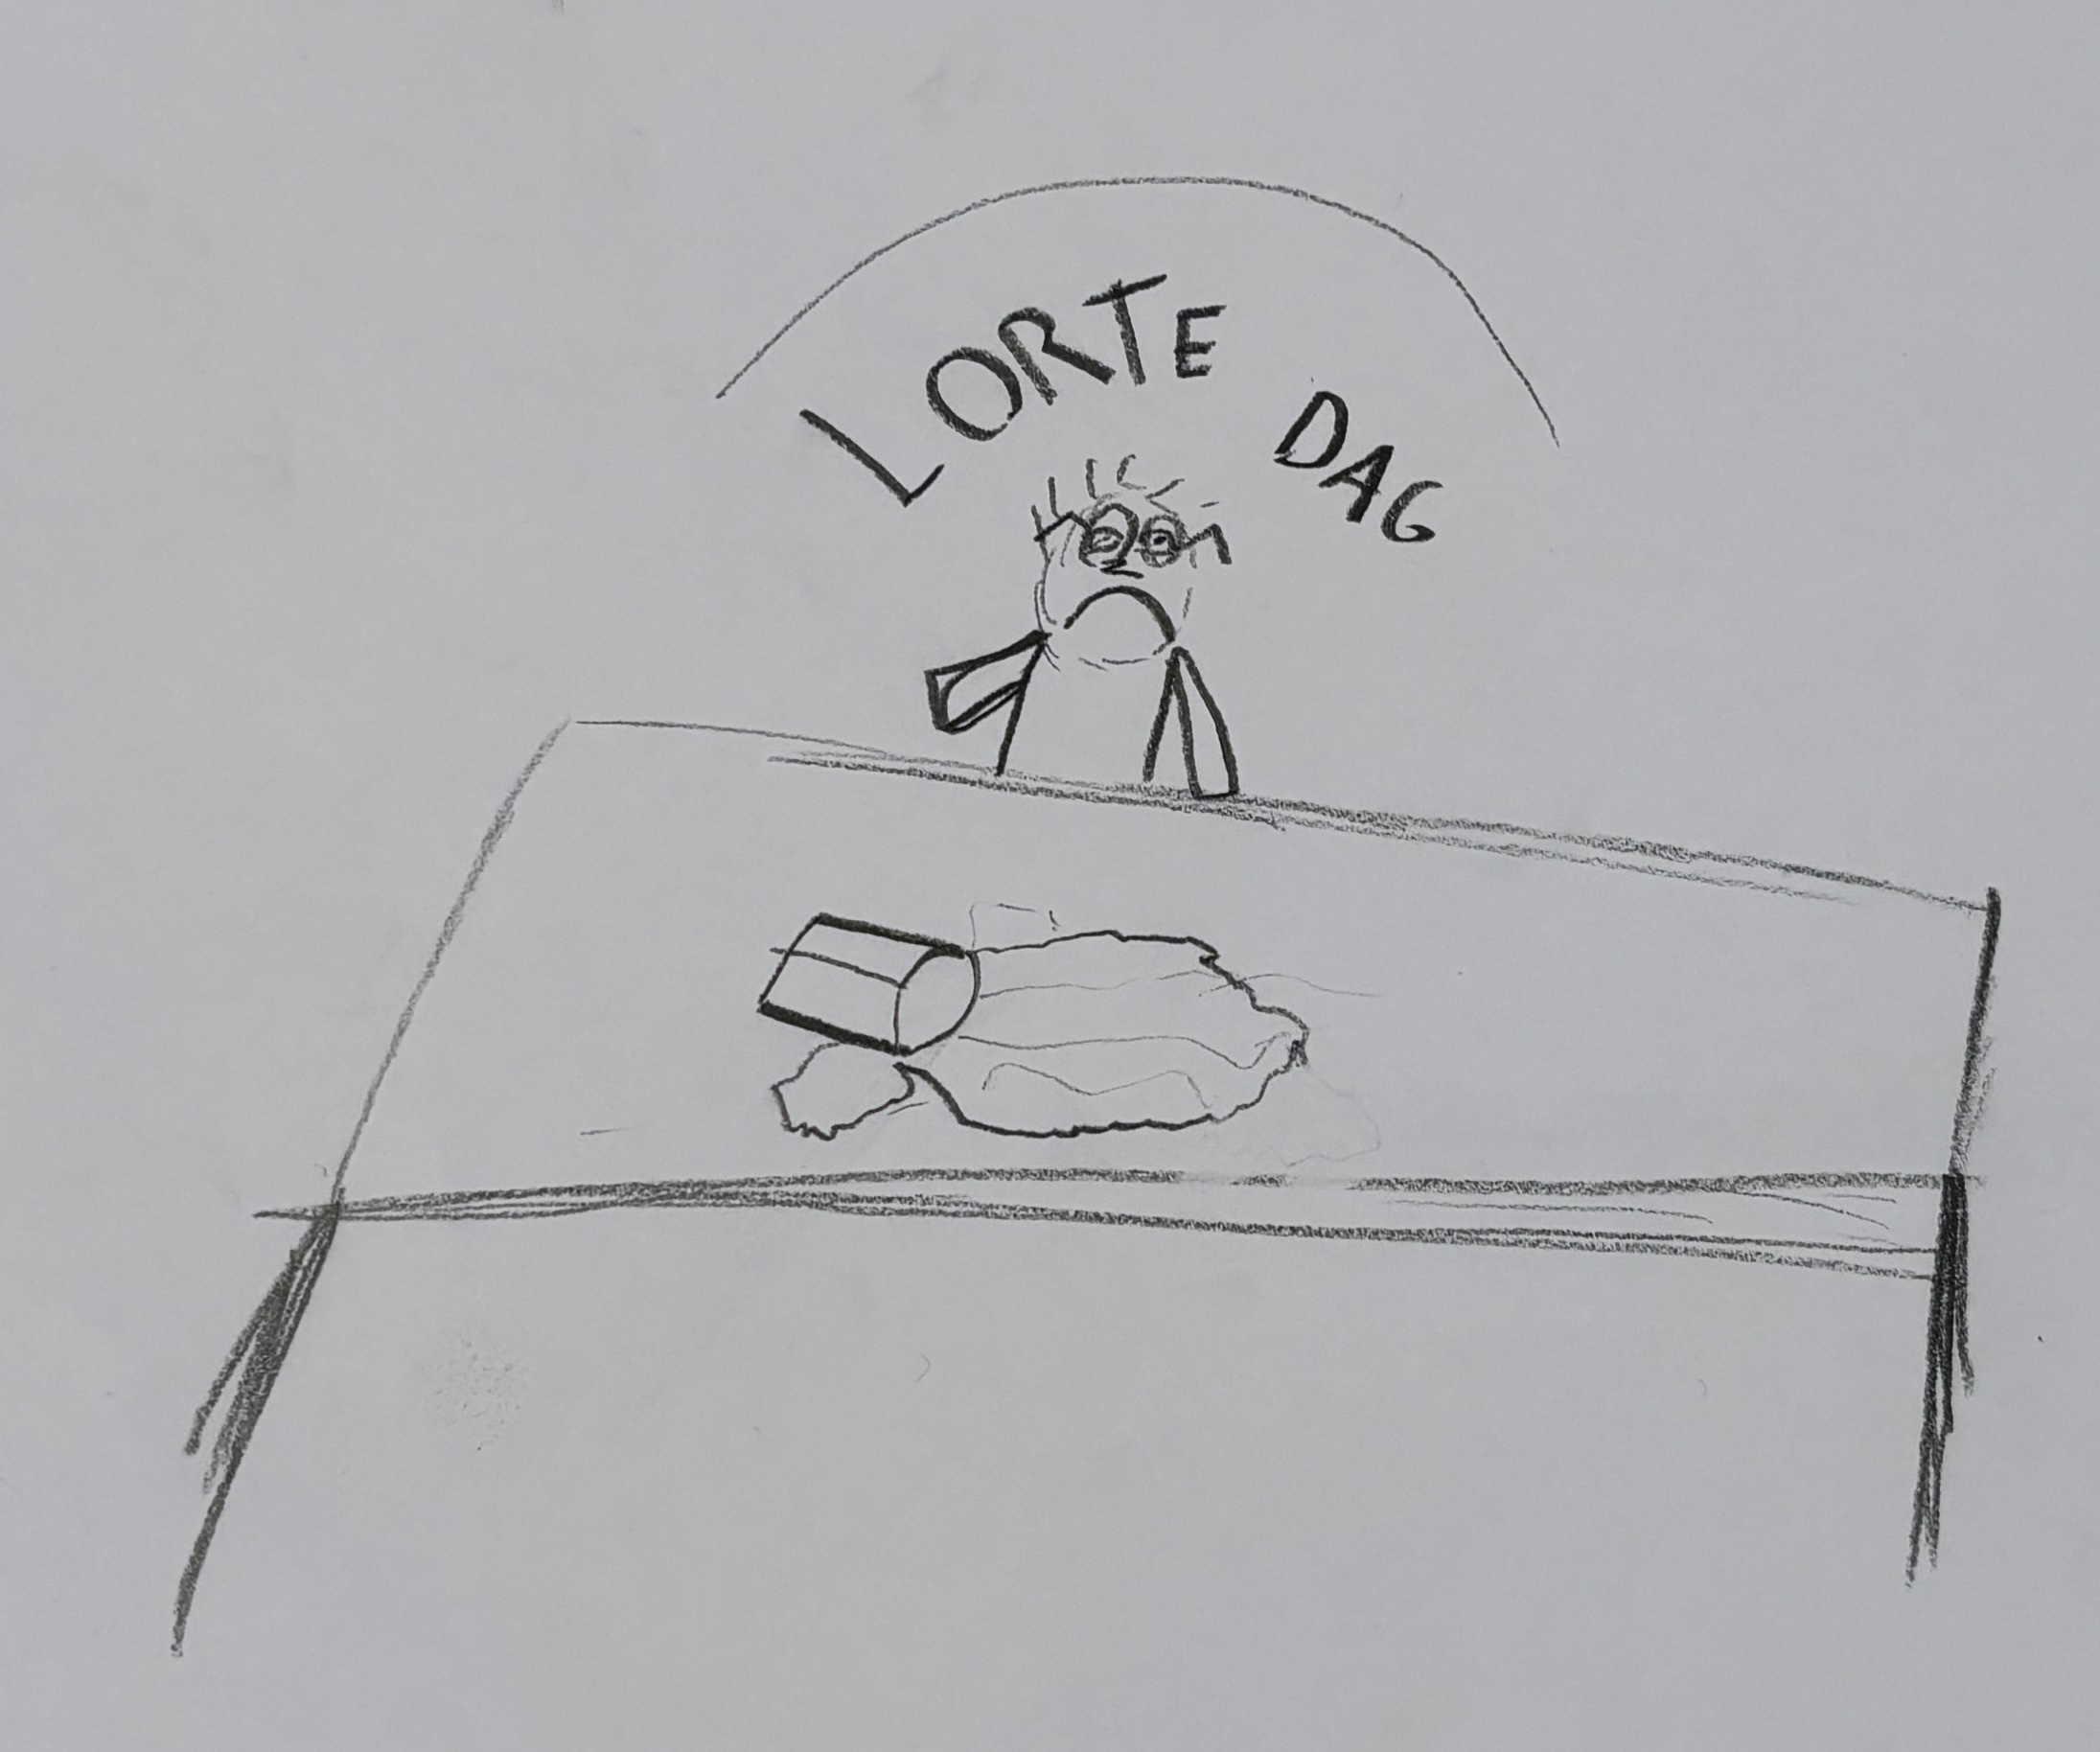 LORTE DAG